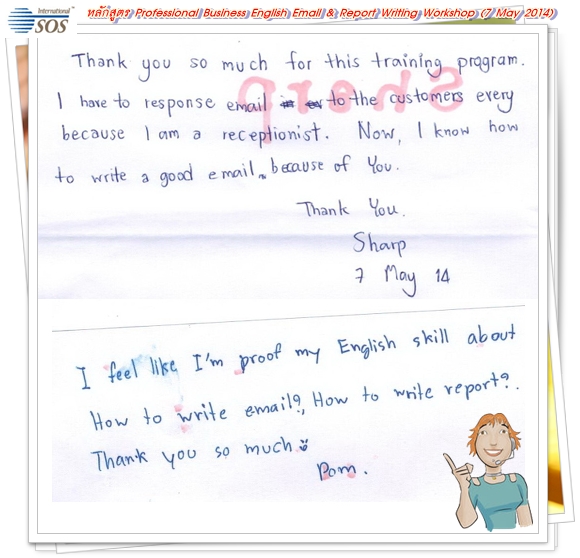 International
SOS
หลักสูตร Professional Business English Email & Report Writing Workshop (7 May 2014)
Thank you so much for this training program.
I have to response email to the customers every
because I am a receptionist. Now, I know how
to write a good email, because of You.
Thank You.
Sharp
7 May 14
I feel like I'm proof my English skill about
How to write email?, How to write report?.
Thank you so much
Pom.